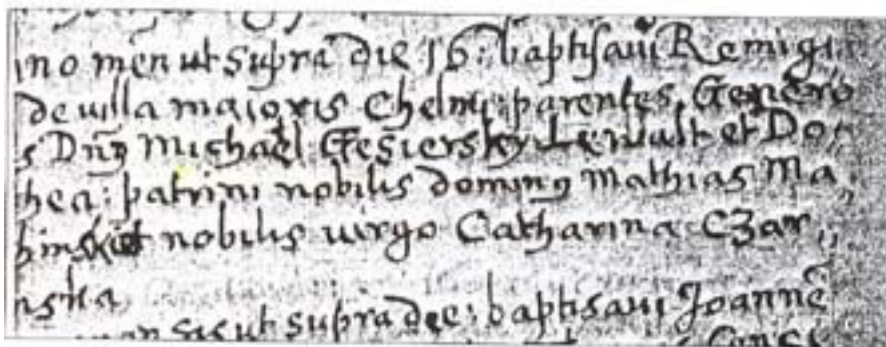 ino men̄ ut supra die 16: baptisavi Remigi
de villa maioris Chelmi: parentes Genero
s Dn̄9 Michael Gesiersky Lewalt et Do,,
thea: patrini nobilis domin9 Mathias Ma,,
hinski et nobilis virgo Catharina Czar,,
nska
sis ut supra die: baptisavi Joannē